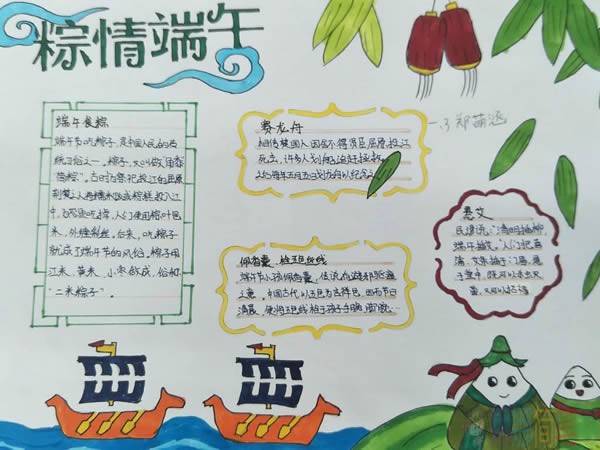 粽情端午
一、3 郑萌涵
端午食粽
端午节吃粽子,是中国人民的传
统习俗之一,粽子,又叫做"角黍"
"筒粽"。古时为祭祀投江的屈原
荆楚之人
投入江
中
吃掉,人们使用粽叶包
米,外缠彩丝,后来,吃粽子
就成了端午节的风俗。粽子用
江米、黄米、小枣做成,俗称
"二米粽子"。
赛龙舟
相传楚国人因舍不得贤臣屈原投江
死去,许多人划船追赶拯救。
之后每年五月五日划龙舟以纪念之。
佩香囊,拴五色丝线
端午节小孩佩香囊,传说有避邪驱瘟
之意。中国古代以五色为吉祥色,因而节日
清晨,
五色线拴于孩子手腕
悬艾
民谚说:"清明插柳,
端午插艾。"人们把菖
蒲、艾条插于门眉,悬
于堂中,既可以祛虫灭
菌,又可以